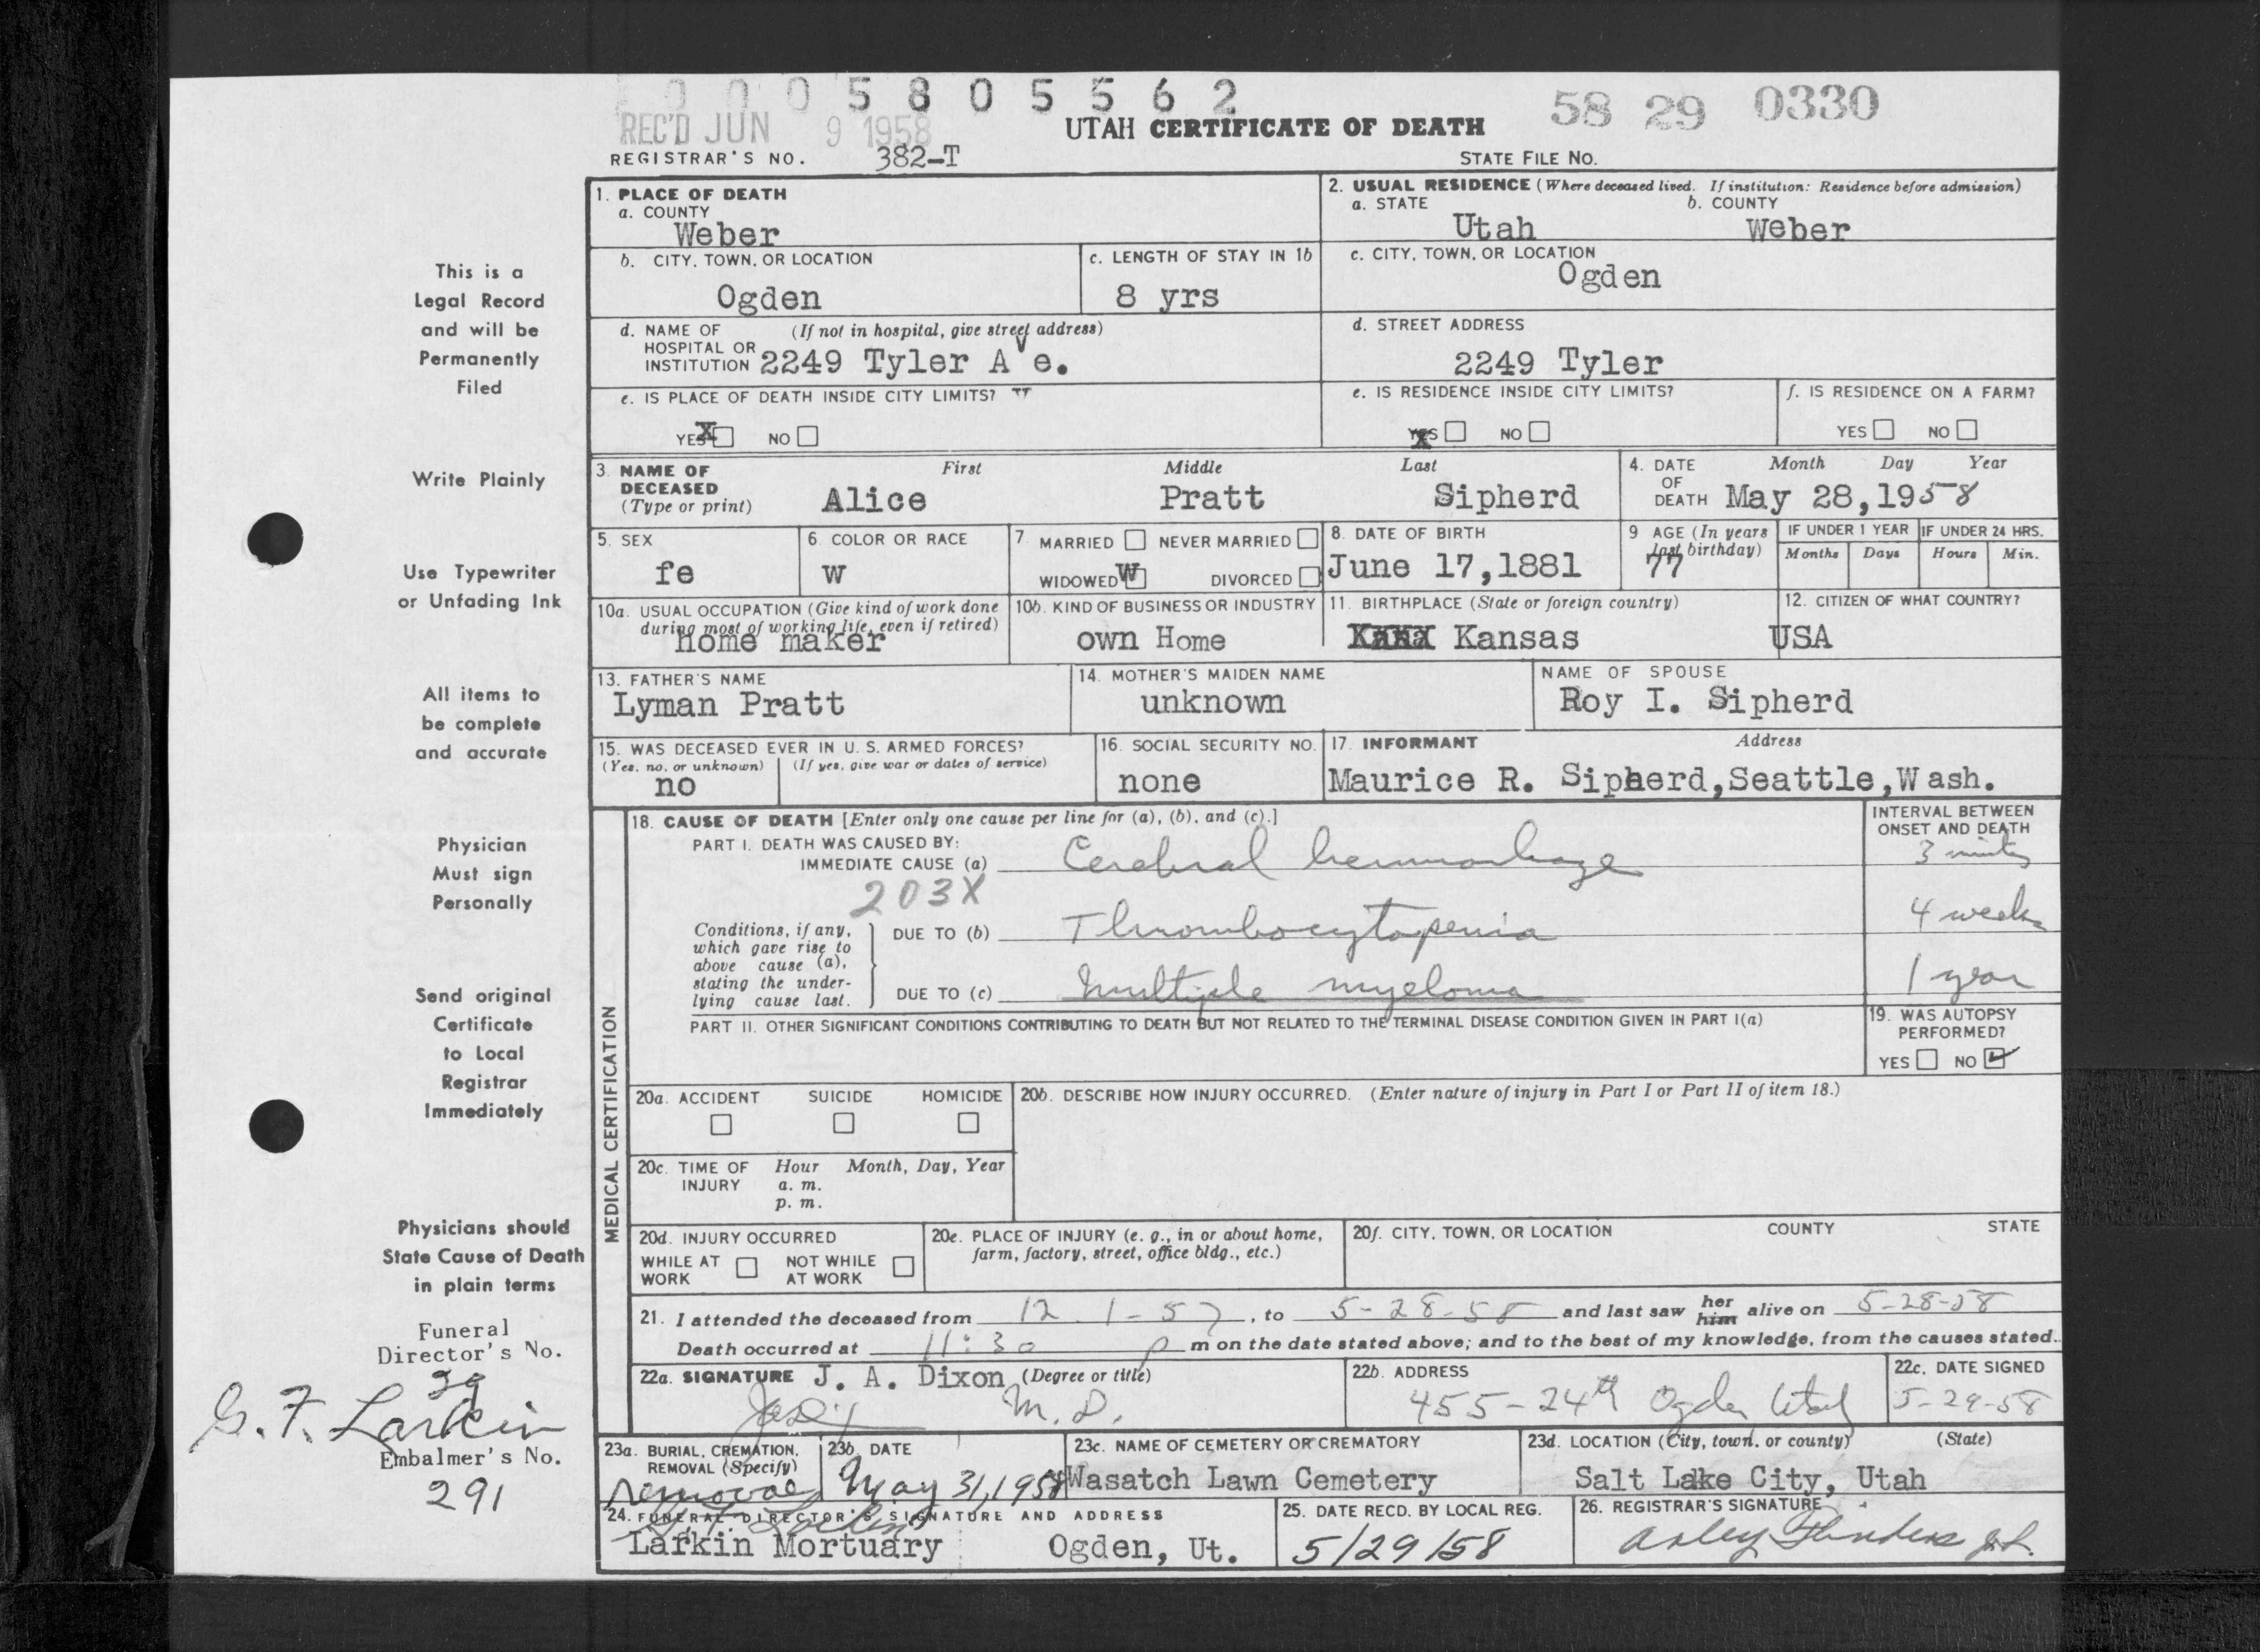 0 0 0 5 8 0 5 5 6 2
REC'D JUN 9 1958
58 29 0330
UTAH CERTIFICATE OF DEATH
REGISTRAR'S NO. 382-T
STATE FILE NO.
This is a
Legal Record
and will be
Permanently
Filed
Write Plainly
Use Typewriter
or Unfading Ink
All items to
be complete
and accurate
Physician
Must sign
Personally
Send original
Certificate
to Local
Registrar
Immediately
Physicians should
State Cause of Death
in plain terms
Funeral
Director's No.
39
G. F. Larkin
Embalmer's No.
291
1. PLACE OF DEATH
a. COUNTY
Weber
2. USUAL RESIDENCE (Where deceased lived. If institution: Residence before admission)
a. STATE b. COUNTY
Utah Weber
b. CITY, TOWN, OR LOCATION
Ogden
c. LENGTH OF STAY IN 1b
8 yrs
c. CITY, TOWN, OR LOCATION
Ogden
d. NAME OF (If not in hospital, give street address)
HOSPITAL OR
INSTITUTION 2249 Tyler Ave.
d. STREET ADDRESS
2249 Tyler
e. IS PLACE OF DEATH INSIDE CITY LIMITS?
YES X NO
e. IS RESIDENCE INSIDE CITY LIMITS?
YES X NO
f. IS RESIDENCE ON A FARM?
YES NO
3. NAME OF DECEASED (Type or print)
First Middle Last
Alice Pratt Sipherd
4. DATE OF DEATH
Month Day Year
May 28,1958
5. SEX
fe
6. COLOR OR RACE
W
7. MARRIED NEVER MARRIED
WIDOWED W DIVORCED
8. DATE OF BIRTH
June 17,1881
9 AGE (In years last birthday)
77
IF UNDER 1 YEAR
Months Days
IF UNDER 24 HRS.
Hours Min.
10a. USUAL OCCUPATION (Give kind of work done
during most of working life, even if retired)
home maker
10b. KIND OF BUSINESS OR INDUSTRY
own Home
11. BIRTHPLACE (State or foreign country)
Kansas
12. CITIZEN OF WHAT COUNTRY?
USA
13. FATHER'S NAME
Lyman Pratt
14. MOTHER'S MAIDEN NAME
unknown
NAME OF SPOUSE
Roy I. Sipherd
15. WAS DECEASED EVER IN U. S. ARMED FORCES?
(Yes, no, or unknown) (If yes, give war or dates of service)
no
16. SOCIAL SECURITY NO.
none
17. INFORMANT Address
Maurice R. Sipherd,Seattle,Wash.
MEDICAL CERTIFICATION
18. CAUSE OF DEATH [Enter only one cause per line for (a), (b), and (c).]
INTERVAL BETWEEN
ONSET AND DEATH
PART I. DEATH WAS CAUSED BY:
IMMEDIATE CAUSE (a) Cerebral hemorrhage
203X
Conditions, if any,
which gave rise to
above cause (a),
stating the under-
lying cause last.
DUE TO (b) Thrombocytopenia 4 weeks
DUE TO (c) Multiple myeloma 1 year
PART II. OTHER SIGNIFICANT CONDITIONS CONTRIBUTING TO DEATH BUT NOT RELATED TO THE TERMINAL DISEASE CONDITION GIVEN IN PART I(a)
19. WAS AUTOPSY
PERFORMED?
YES NO ✓
20a. ACCIDENT SUICIDE HOMICIDE
20b. DESCRIBE HOW INJURY OCCURRED. (Enter nature of injury in Part I or Part II of item 18.)
20c. TIME OF INJURY
Hour Month, Day, Year
a. m.
p. m.
20d. INJURY OCCURRED
WHILE AT WORK NOT WHILE AT WORK
20e. PLACE OF INJURY (e. g., in or about home,
farm, factory, street, office bldg., etc.)
20f. CITY, TOWN, OR LOCATION COUNTY STATE
21. I attended the deceased from 12-1-57, to 5-28-58 and last saw her him alive on 5-28-58
Death occurred at 11:30 p m on the date stated above; and to the best of my knowledge, from the causes stated.
22a. SIGNATURE J. A. Dixon (Degree or title)
M. D.
22b. ADDRESS
455-24th Ogden Utah
22c. DATE SIGNED
5-29-58
23a. BURIAL, CREMATION,
REMOVAL (Specify)
removal
23b. DATE
May 31, 1958
23c. NAME OF CEMETERY OR CREMATORY
Wasatch Lawn Cemetery
23d. LOCATION (City, town, or county) (State)
Salt Lake City, Utah
24. FUNERAL DIRECTOR'S SIGNATURE AND ADDRESS
G. F. Larkin
Larkin Mortuary Ogden, Ut.
25. DATE RECD. BY LOCAL REG.
5/29/58
26. REGISTRAR'S SIGNATURE